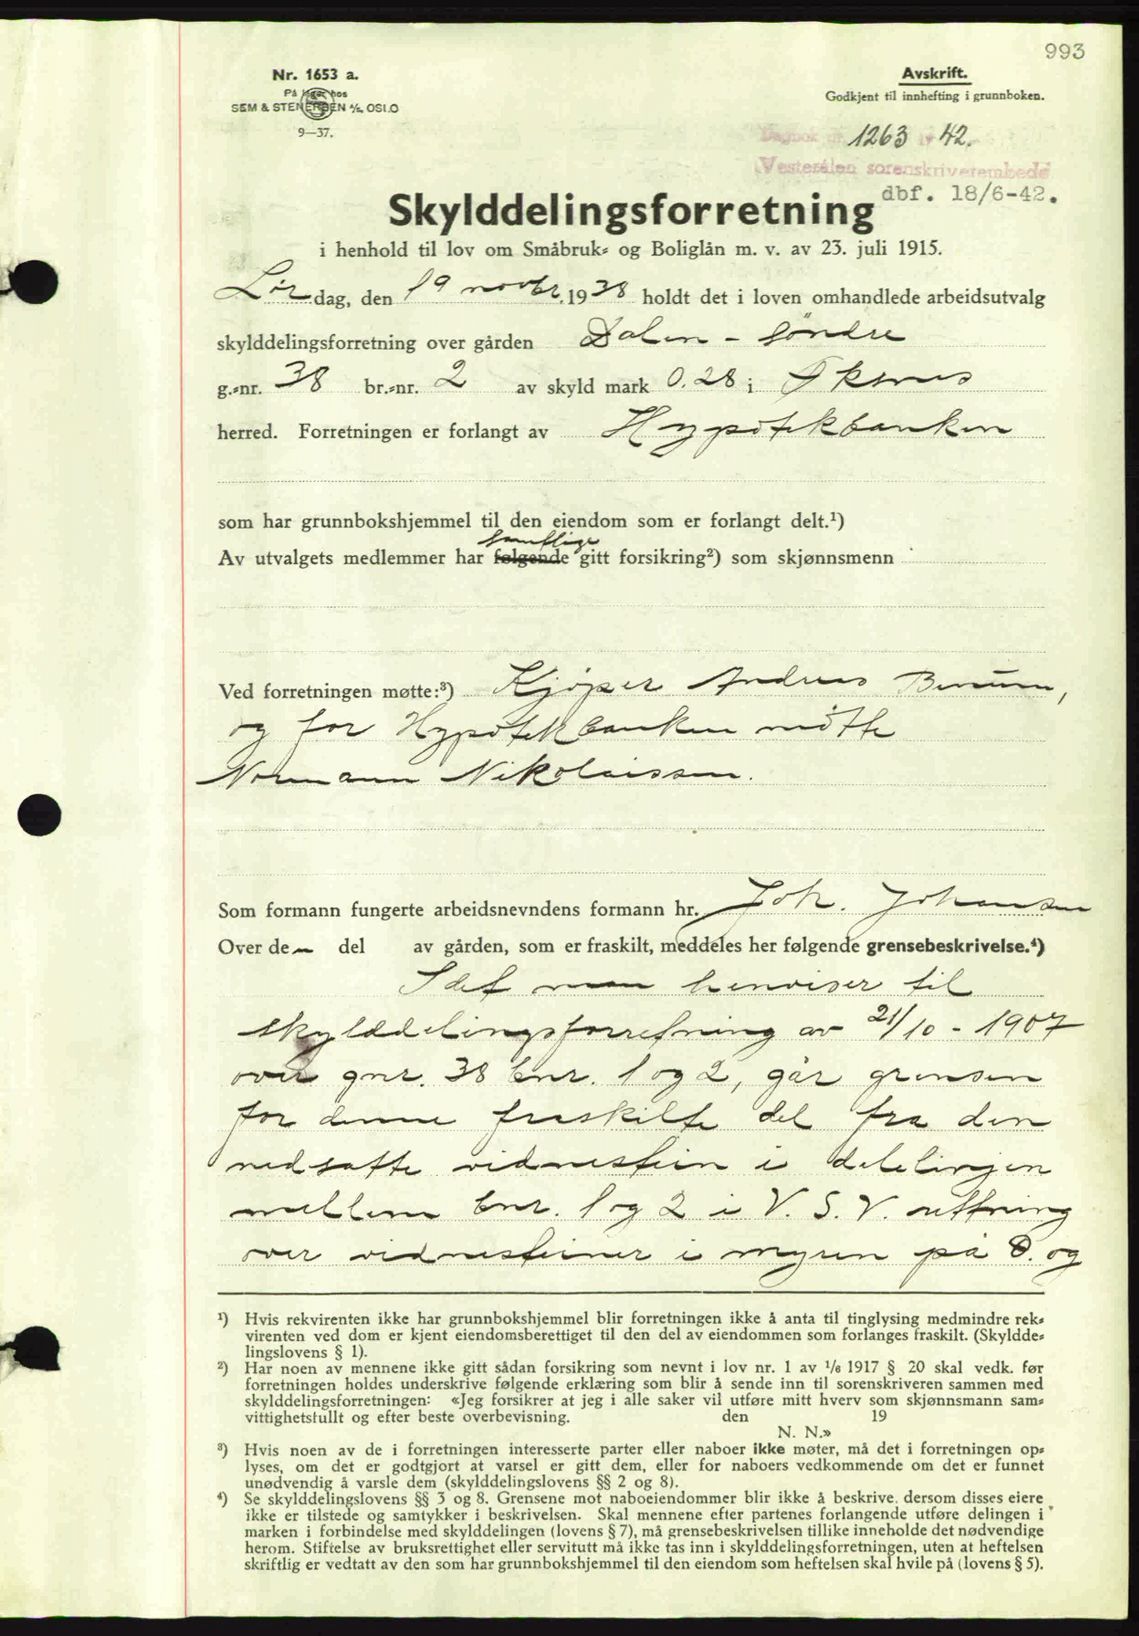 993
Nr. 1653 a.
På lager hos
SEM & STENERSEN A/S, OSLO
9—37.
Avskrift.
Godkjent til innhefting i grunnboken.
Dagbok nr. 1263 19 42.
Vesterålen sorenskriverembede
dbf. 18/6-42.
Skylddelingsforretning
i henhold til lov om Småbruk- og Boliglån m. v. av 23. juli 1915.
Lørdag, den 19 novbr. 1938 holdt det i loven omhandlede arbeidsutvalg
skylddelingsforretning over gården Dalen - söndre
g.-nr. 38 br.-nr. 2 av skyld mark 0.28 i Øksnes
herred. Forretningen er forlangt av Hypotekbanken
som har grunnbokshjemmel til den eiendom som er forlangt delt.¹)
samtlige
Av utvalgets medlemmer har følgende gitt forsikring²) som skjønnsmenn
Ved forretningen møtte:³) Kjøper Andreas
og for Hypotekbanken møtte
Normann Nikolaissen.
Som formann fungerte arbeidsnevndens formann hr. Joh. Johansen
Over de— del av gården, som er fraskilt, meddeles her følgende grensebeskrivelse.⁴)
Idet man henviser til
skylddelingsforretning av 21/10 - 1907
over gnr. 38 bnr. 1 og 2, går grensen
for denne fraskilte del fra den
nedsatte vidnestein i delelinjen
mellem bnr. 1 og 2 i V. S. V. retning
over vidnesteiner i myren på Ø. og
¹) Hvis rekvirenten ikke har grunnbokshjemmel blir forretningen ikke å anta til tinglysing medmindre rek-
virenten ved dom er kjent eiendomsberettiget til den del av eiendommen som forlanges fraskilt. (Skyldde-
lingslovens § 1).
²) Har noen av mennene ikke gitt sådan forsikring som nevnt i lov nr. 1 av 1/6 1917 § 20 skal vedk. før
forretningen holdes underskrive følgende erklæring som blir å sende inn til sorenskriveren sammen med
skylddelingsforretningen: «Jeg forsikrer at jeg i alle saker vil utføre mitt hverv som skjønnsmann sam-
vittighetsfullt og efter beste overbevisning. den 19
N. N.»
³) Hvis noen av de i forretningen interesserte parter eller naboer ikke møter, må det i forretningen op-
lyses, om det er godtgjort at varsel er gitt dem, eller for naboers vedkommende om det er funnet
unødvendig å varsle dem (skylddelingslovens §§ 2 og 8).
⁴) Se skylddelingslovens §§ 3 og 8. Grensene mot naboeiendommer blir ikke å beskrive. dersom disses eiere
ikke er tilstede og samtykker i beskrivelsen. Skal mennene efter partenes forlangende utføre delingen i
marken i forbindelse med skylddelingen (lovens § 7), må grensebeskrivelsen tillike inneholde det nødvendige
herom. Stiftelse av bruksrettighet eller servitutt må ikke tas inn i skylddelingsforretningen, uten at heftelsen
skriftlig er vedtatt av den som har grunnbokshjemmel til den eiendom som heftelsen skal hvile på (lovens § 5).